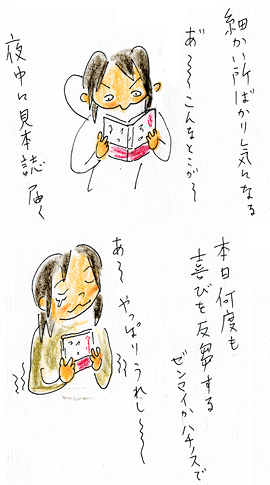 細かい所ばかり気になる
あ゛～～こんなとこが～
夜中に見本誌届く
本日何度も
喜びを反芻する
ゼンマイかハチノスで
あ～やっぱりうれし～～